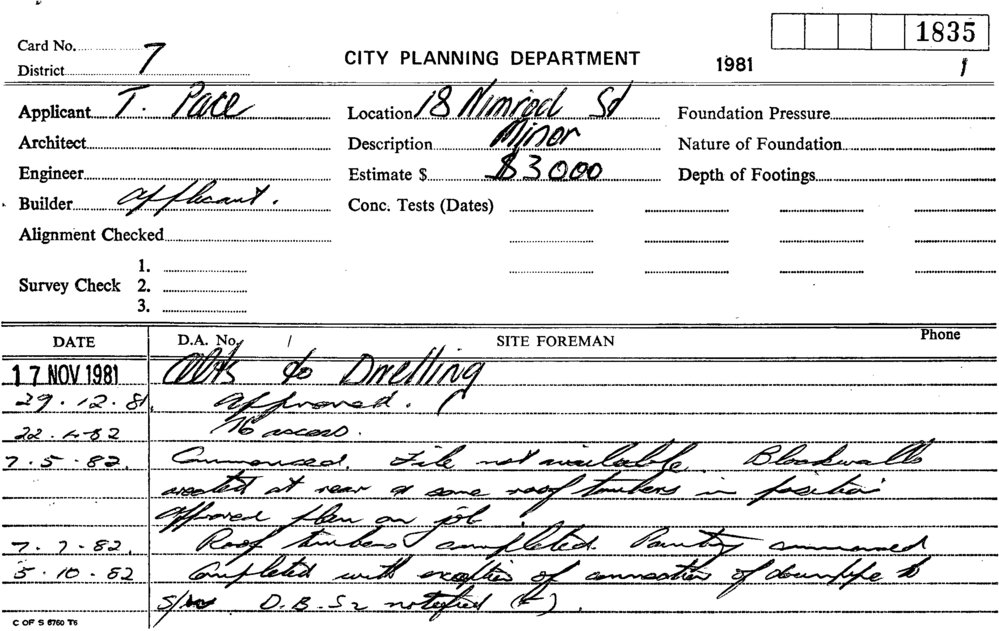 1835
Card No. 7
CITY PLANNING DEPARTMENT 1981 1
District
Applicant T. Pace Location 18 Nimrod St Foundation Pressure
Architect Description Minor Nature of Foundation
Engineer Estimate $ $3000 Depth of Footings
Builder applicant. Conc. Tests (Dates)
Alignment Checked
1.
Survey Check 2.
3.
DATE D.A. No. / SITE FOREMAN Phone
17 NOV 1981 Alts to Dwelling
29.12.81. approved.
22.4.82 No access.
7.5.82. Commenced. File not available. Blockwalls
erected at rear & some roof timbers in position
approved plan on job.
7.7.82. Roof timbers completed. Painting commenced
5.10.82 Completed with exception of connection of downpipe to
S/W D.B.S2 notified ( ).
C OF S 6760 T6